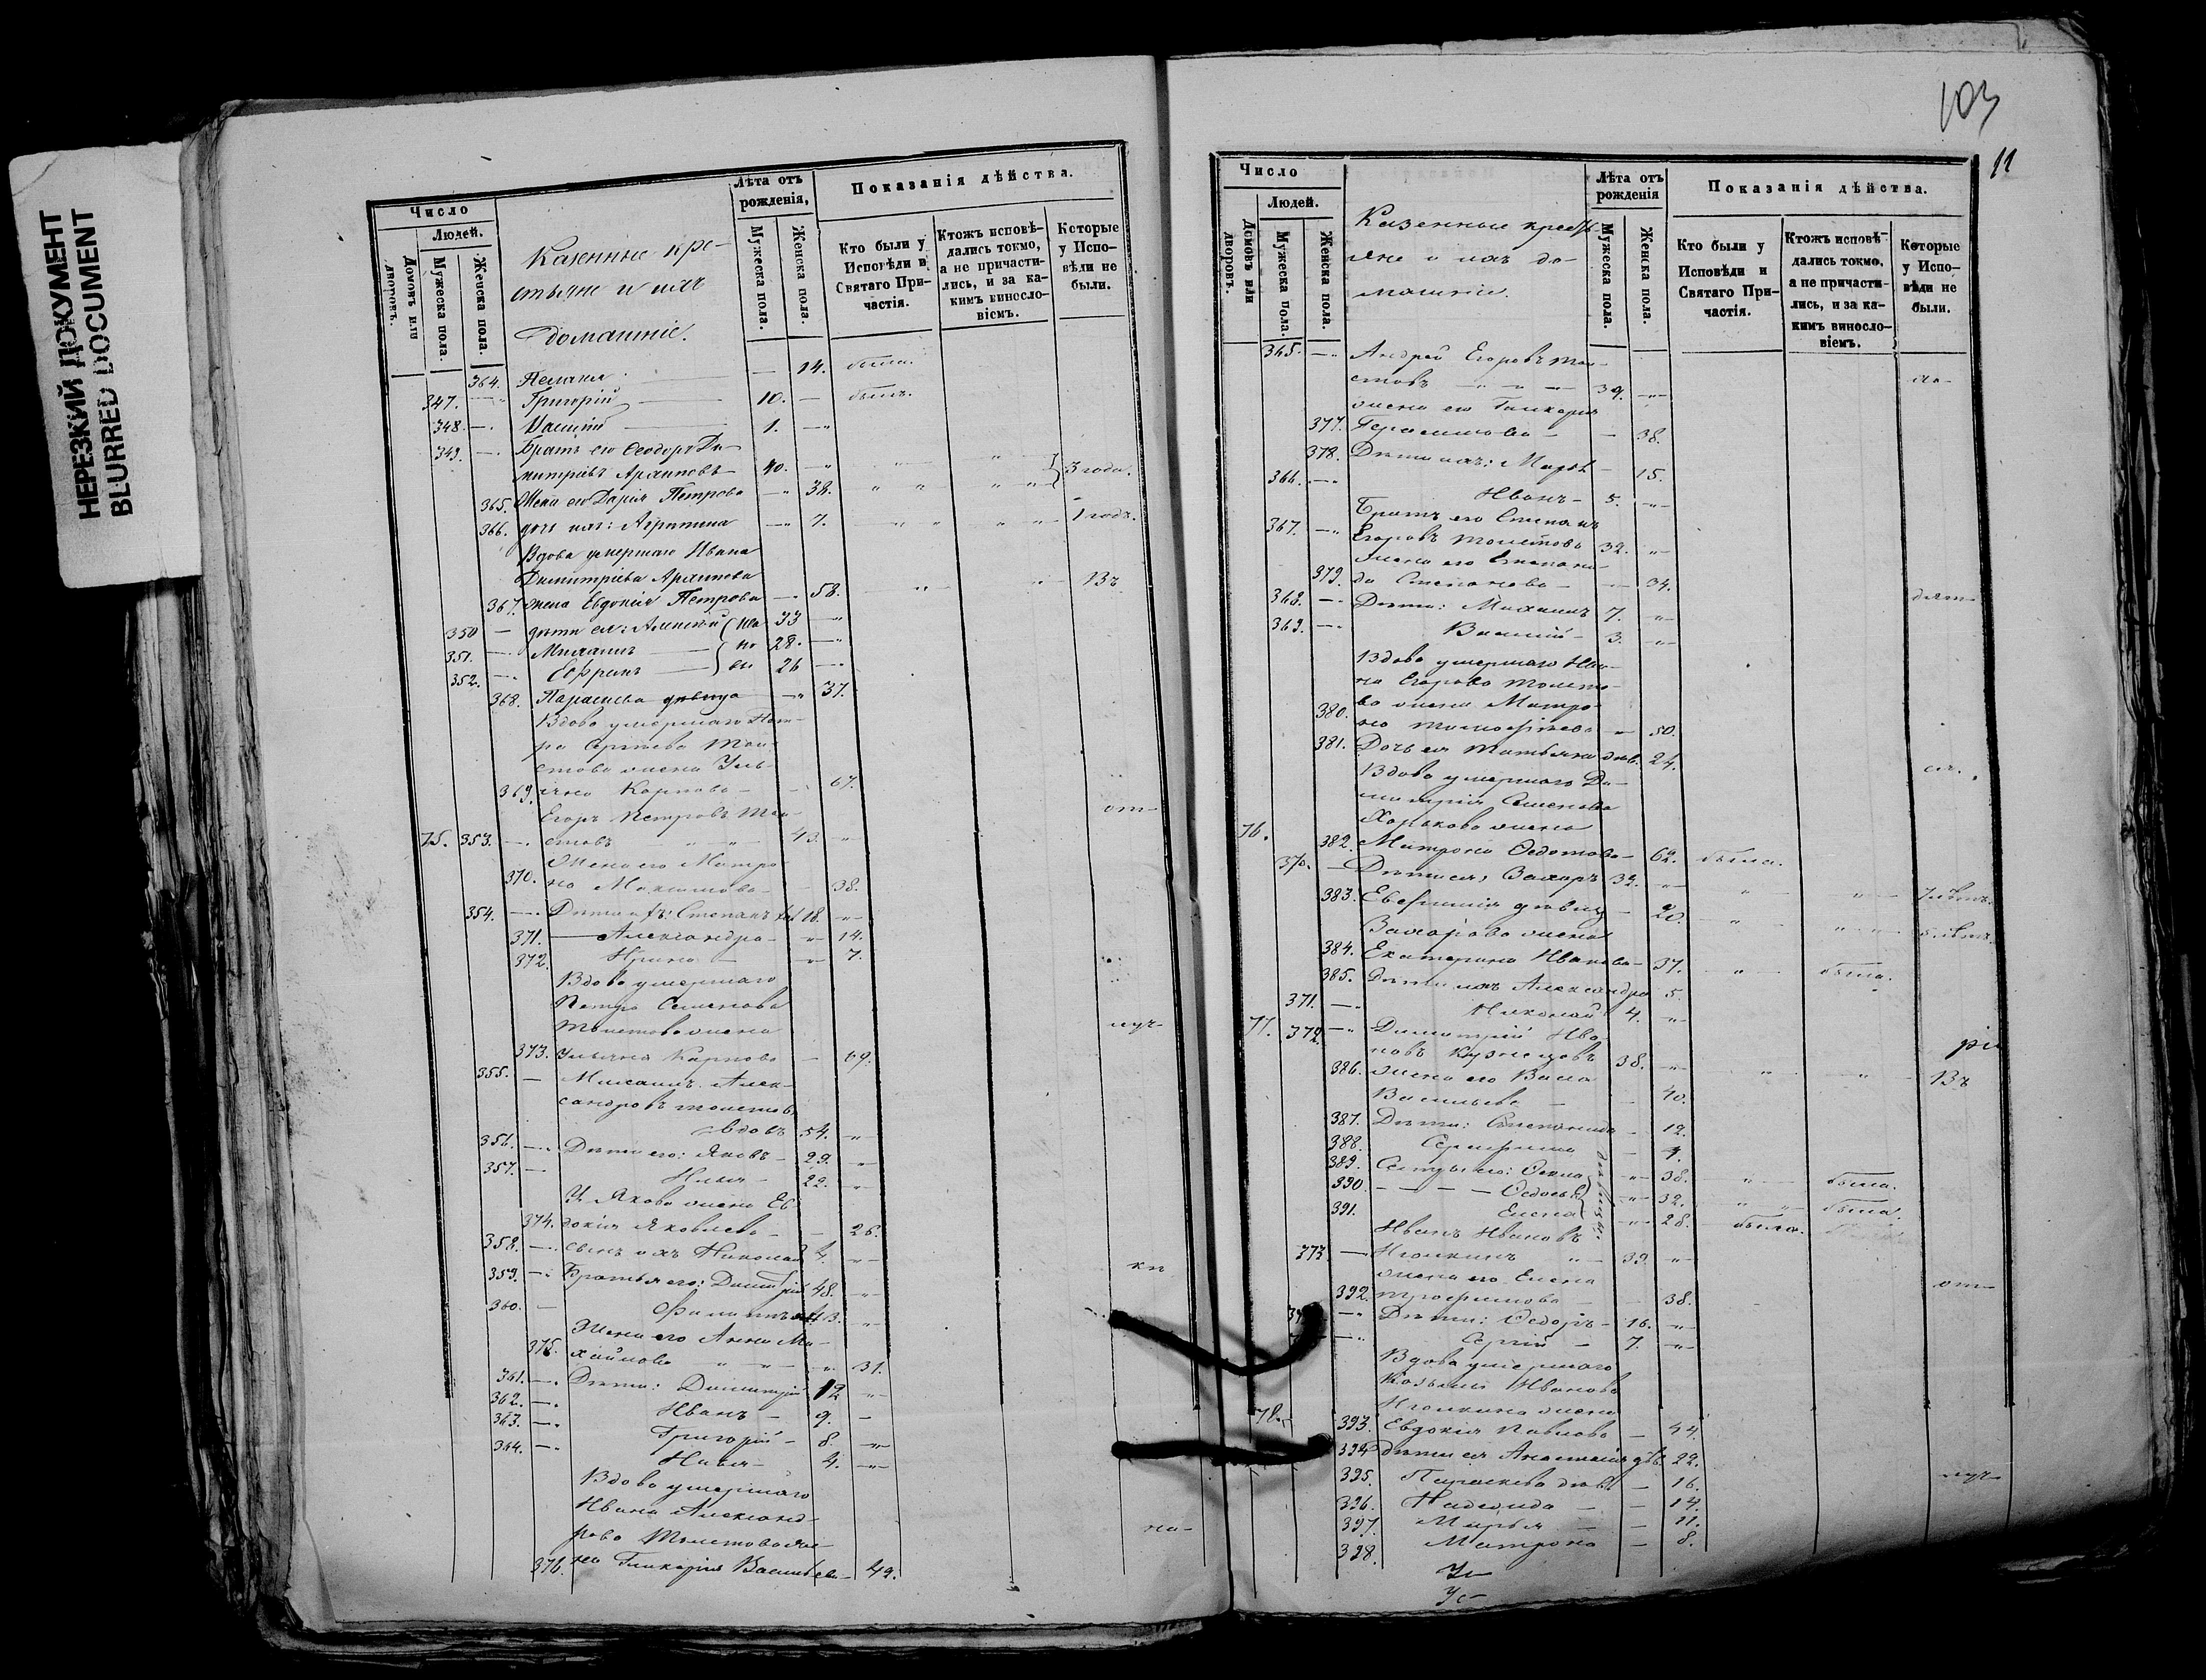 НЕРЕЗКИЙ ДОКУМЕНТ
BLURRED DOCUMENT
Число
Людей.
Домовъ или дворовъ.
Мужеска пола.
Женска пола.
Казенные кре-
стьяне и ихъ
домашніе.
Лѣта отъ рожденія,
Мужеска пола.
Женска пола.
Показанія дѣйства.
Кто были у Исповѣди и Святаго При-частія.
Ктожъ исповѣ-дались токмо, а не причасти-лись, и за ка-кимъ винносло-віемъ.
Которые у Испо-вѣди не были.
364. Пелагия — 14. была.
347. — Григорій 10. — былъ.
348. — Василій 1. —
349. — Братъ его Ѳеодоръ Ди-
митріевъ Архиповъ 40. — 3 года.
365. Жена его Дарія Петрова — 38.
366. дочь ихъ: Агрипина — 7. 1 годъ.
Вдова умершаго Ивана
Димитріева Архипова
367. жена Евдокія Петрова — 58. Въ
350 — дѣти ея: Алексѣй 33 —
351. — Михаилъ 28. —
352. — Ефремъ 26 —
368. Параскева дѣвица — 37.
Вдова умершаго Пет-
ра Сергѣева Тол-
стова жена Улья-
369. яна Карпова — 67.
Егоръ Петровъ Тол- от-
75. 353. — стовъ 43. —
Жена его Матро-
370. на Максимова — 38.
354. — Дѣти ихъ: Степанъ 18. —
371. Александра — 14.
372. Ирина — 7.
Вдова умершаго
Петра Семенова
Толстова жена луч-
373. Ульяна Карпова — 69.
355. — Михаилъ Алек-
сандровъ Толстовъ
вдовъ 54. —
356. — Дѣти его: Яковъ 29. —
357. — Илья 22. —
У Якова жена Ев-
374. докія Яковлева — 26.
358. — сынъ ихъ Николай 4. —
359. — Братья его: Димитрій 48. — кп
360. — Филиппъ 43. —
Жена его Анна Ми-
375. хайлова — 31.
361. — Дѣти: Димитрій 12 —
362. — Иванъ 9. —
363. — Григорій 8. —
364. — Илья 4. —
Вдова умершаго
Ивана Александ-
рова Толстова же- на-
376. на Гликерія Васильева 42.
103
11
Число
Людей.
Домовъ или дворовъ.
Мужеска пола.
Женска пола.
Казенные кресть-
яне и ихъ до-
машніе.
Лѣта отъ рожденія
Мужеска пола.
Женска пола.
Показанія дѣйства.
Кто были у Исповѣди и Святаго При-частія.
Ктожъ исповѣ-дались токмо, а не причасти-лись, и за ка-кимъ винносло-віемъ.
Которые у Испо-вѣди не были.
365. — Андрей Егоровъ Тол-
стовъ 39. —
жена его Гликерія
377. Герасимова — 38.
378. Дѣти ихъ: Марѳа — 15.
366. — Иванъ 5. —
Братъ его Степанъ
367. — Егоровъ Толстовъ 32. —
Жена его Степани-
379. да Степанова — 34.
368. — Дѣти: Михаилъ 7. —
369. — Василій 3. —
Вдова умершаго Ива-
на Егорова Толсто-
ва жена Матро-
380. на Тимофѣева — 50.
381. Дочь ея Татьяна дѣв. 24.
Вдова умершаго Ди-
митрія Семенова
76. Харькова жена
382. Матрона Ѳедотова — 62. была.
370. — Дѣти ея: Захаръ 32. — 7 лѣтъ.
383. Евфимія дѣвица — 20. 5 лѣтъ.
Захарова жена
384. Екатерина Иванова — 37. была.
385. Дѣти ихъ Александра 5.
371. — Николай 4. —
77. 372. — Димитрій Ива-
новъ Кузнецовъ 38. — Въ
386. жена его Васса
Васильева — 40.
387. Дѣти: Степанида — 12.
388. Серафима — 4.
389. Сестры его: Ѳекла — 38. была.
390. Ѳедосья — 32. была.
391. Елена — 28. была.
дѣвицы.
Иванъ Ивановъ
373 — Иголкинъ 39. —
жена его Елена от-
392. Трофимова — 38.
— Дѣти: Ѳедоръ 16. —
— Сергій 7. —
Вдова умершаго
Козьмы Иванова
78. Иголкина жена
393. Евдокія Павлова — 44.
394 дѣти ея Анастасія дѣв. 22.
395. Параскева дѣв. — 16. луч-
396. Надежда — 14.
397. Марья — 11.
398. Матрона — 8.